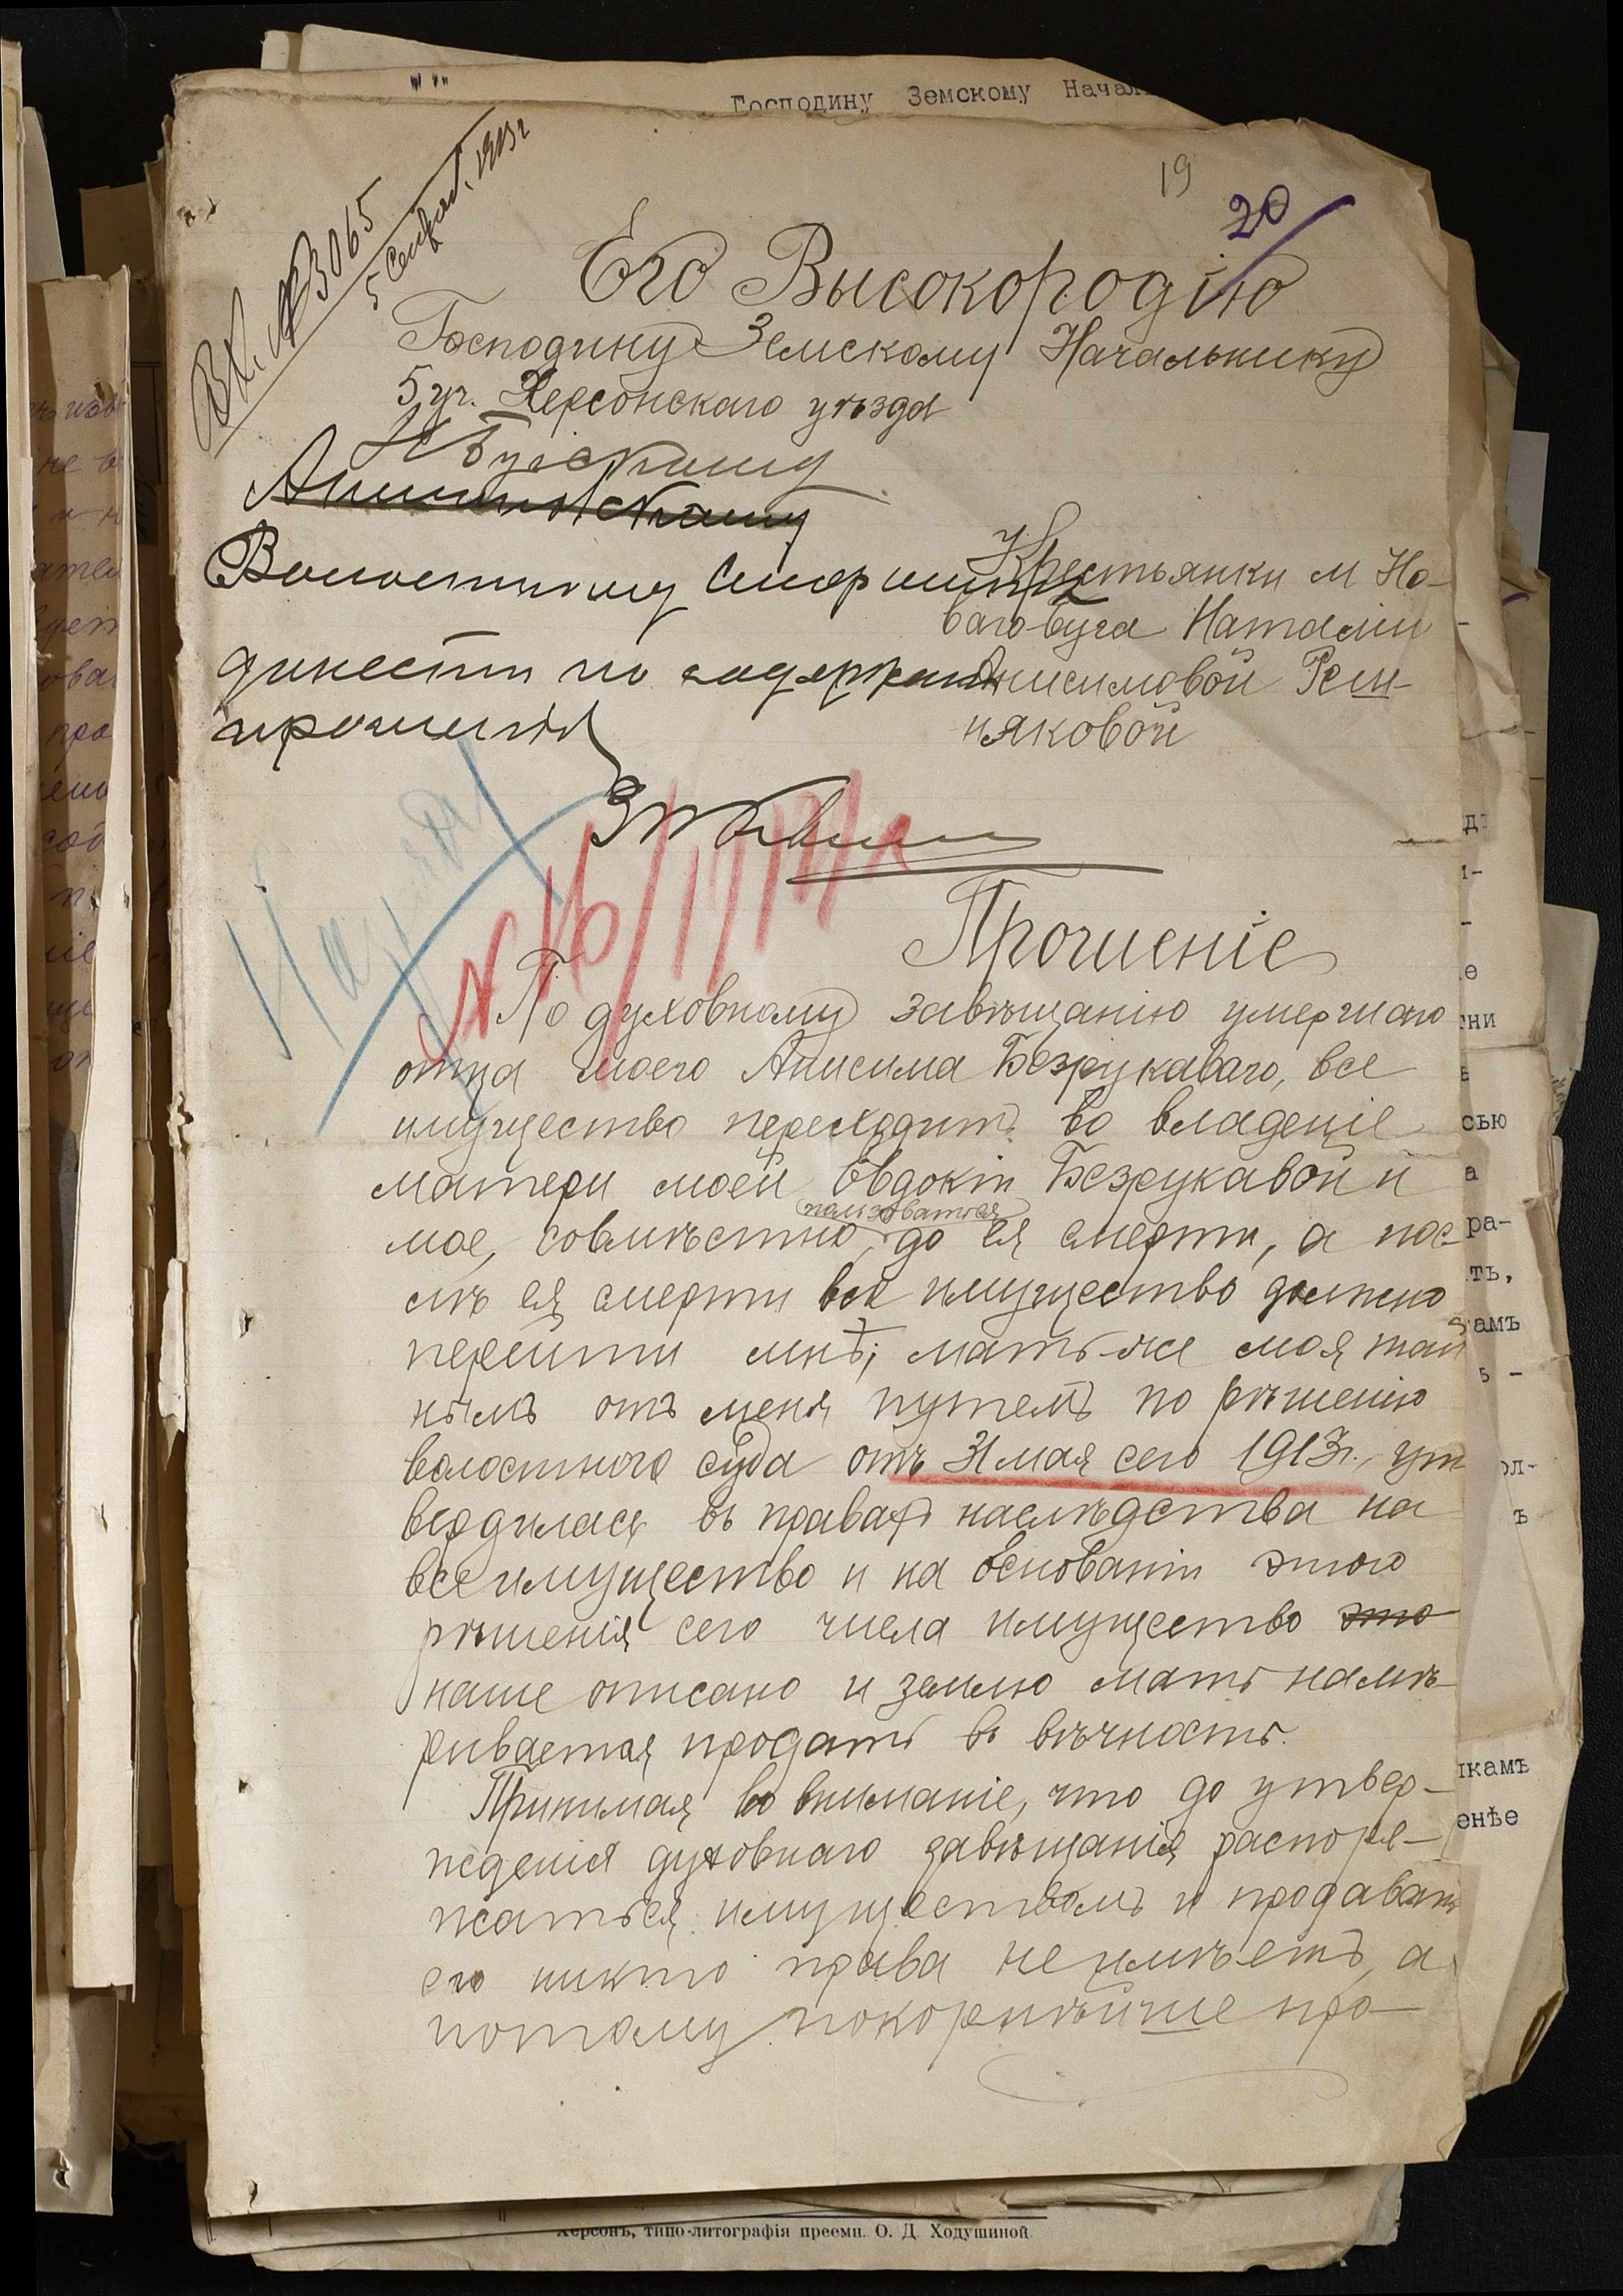 Господину Земскому Начал
19
20
Вх. № 3065
5 Сентяб. 1913 г
Его Высокородію
Господину Земскому Начальнику
5 уч. Херсонскаго уѣзда
Н Бугскому
Волостному Старшинѣ
донести по содержан
прошенія
Крестьянки м Но-
ваго Буга Наталіи
Анисимовой Реш-
няковой
Прошеніе
По духовному завѣщанію умершаго
отца моего Анисима Безрукаваго, все
имущество переходитъ во владеніе
матери моей Евдокіи Безрукавой и
мое, совмѣстно, ползоваться до ея смерти, а пос-
лѣ ея смерти все имущество должно
перейти мнѣ; мать-же моя тай
нымъ отъ меня путемъ по рѣшенію
волостного суда отъ 31 мая сего 1913 г., ут
вердилась въ правахъ наслѣдства на
все имущество и на основаніи этого
рѣшенія сего числа имущество это
наше описано и землю мать намѣ-
ривается продать въ вѣчность.
Принимая во вниманіе, что до утвер-
жденія духовнаго завѣщанія распоря-
жаться имуществомъ и продавать
его никто права не имѣетъ, а
потому покорнѣйше про-
Херсонъ, типо-литографія преемн. О. Д. Ходушиной.